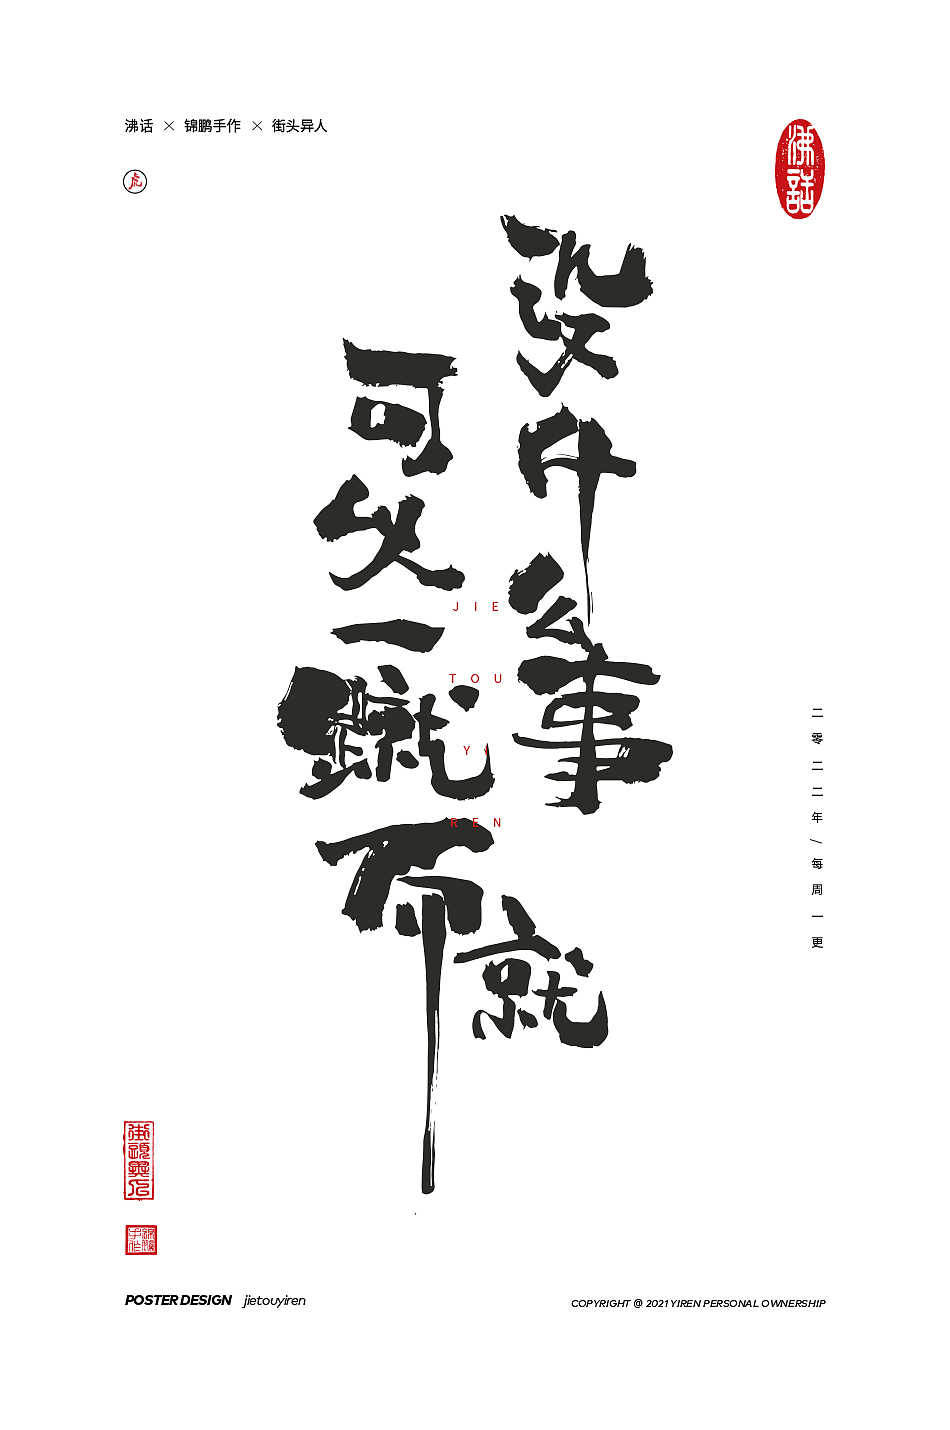 沸话 × 锦鹏手作 × 街头异人
虎
沸話
没什么事
可以一蹴而就
JIE
TOU
YI
REN
二零二二年/每周一更
街頭異人
POSTER DESIGN jietouyiren
COPYRIGHT @ 2021 YIREN PERSONAL OWNERSHIP